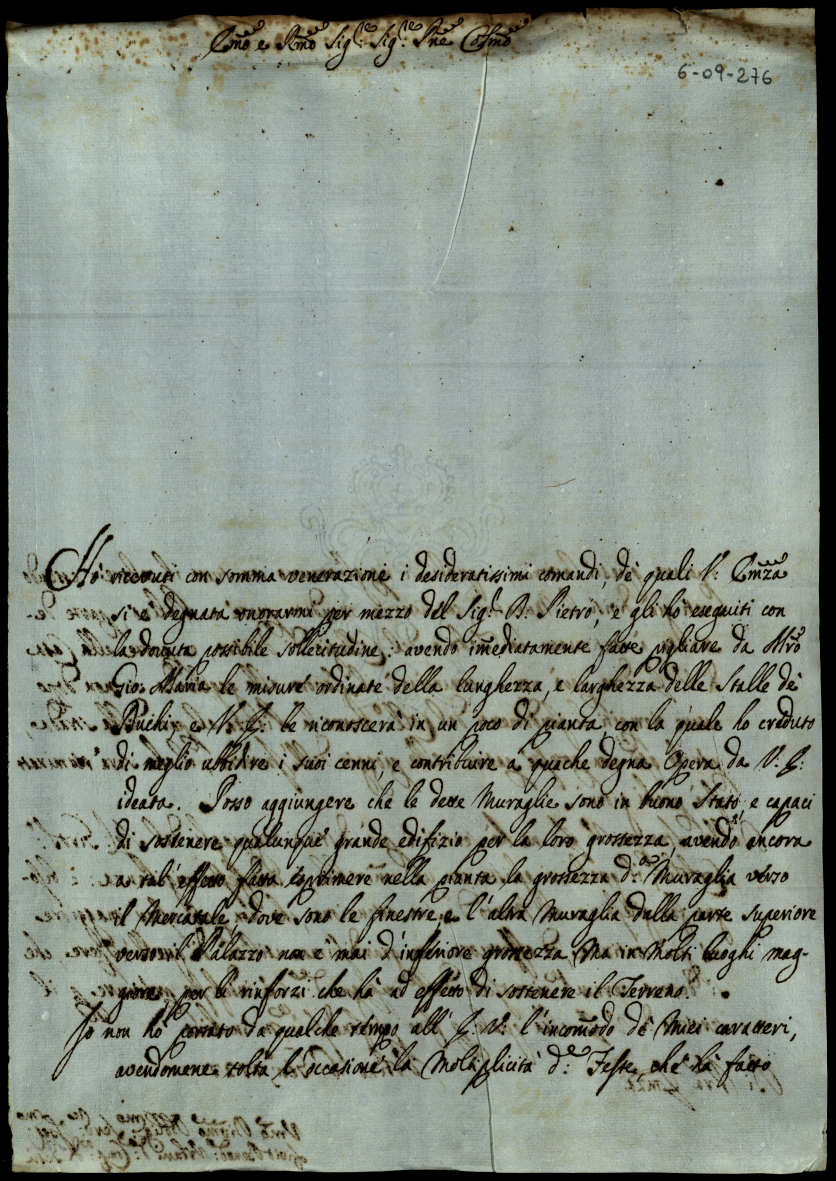 Emo e Rmo Sig.re Sig.re Pne Colmo
6-09-276
Hò ricevuti con somma venerazione i desideratissimi comandi, de quali V: Emza
si è degnata onorarmi per mezzo del Sig.r D. Pietro, e gli hò eseguiti con
la dovuta possibile sollecitudine: avendo immediatamente fatte pigliare da Mro
Gio: Maria le misure ordinate della lunghezza, e larghezza delle Stalle de
Duchi, e V. E: le riconoscerà in un poco di pianta, con la quale hò creduto
di meglio ubbidire i suoi cenni, e contribuire a quache degna Opera da V: E:
ideata. Posso aggiungere che le dette Muraglie sono in buono Stato e capaci
di sostenere qualunque grande edifizio per la loro grossezza, avendo ancora
a tal effetto fatta esprimere nella pianta la grossezza d.a Muraglia verso
il Mercatale, dove sono le finestre, e l'altra Muraglia dalla parte Superiore
verso il Palazzo non è mai d'inferiore grossezza, Ma in Molti luoghi mag-
giore, per li rinforzi che hà ad effetto di sostenere il Terreno.
Io non hò portato da qualche tempo all' E. V: l'incommodo de Miei caratteri,
avendomene tolta l'occasione la Molteplicità d.e Feste, che hà fatto